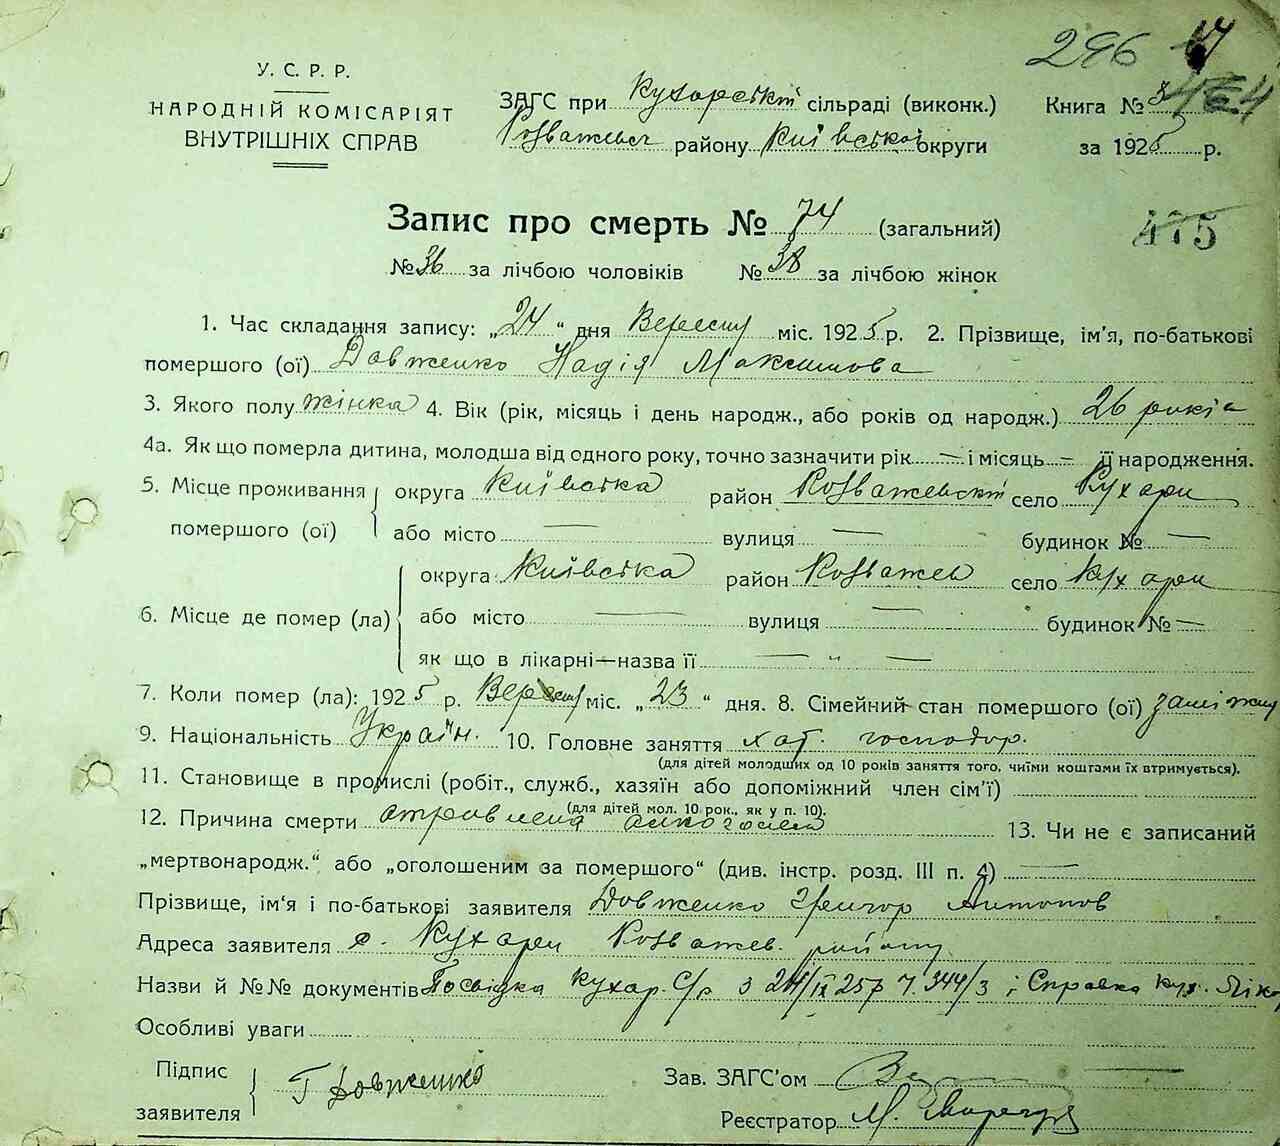 296
У. С. Р. Р.
НАРОДНІЙ КОМІСАРІЯТ
ВНУТРІШНІХ СПРАВ
ЗАГС при Кухарській сільраді (виконк.)
Розважевск району Київської округи
Книга № 3
за 1925 р.
Запис про смерть № 74 (загальний)
475
№ 36 за лічбою чоловіків № 38 за лічбою жінок
1. Час складання запису: „24“ дня Вересня міс. 1925 р. 2. Прізвище, ім’я, по-батькові
помершого (ої) Довженко Надія Максимова
3. Якого полу жінка 4. Вік (рік, місяць і день народж., або років од народж.) 26 років
4а. Як що померла дитина, молодша від одного року, точно зазначити рік — і місяць — її народження.
5. Місце проживання округа Київська район Розважевскій село Кухари
помершого (ої) або місто — вулиця — будинок № —
округа Київська район Розважев село Кухари
6. Місце де помер (ла) або місто — вулиця — будинок № —
як що в лікарні—назва її — „ —
7. Коли помер (ла): 1925 р. Вересня міс. „23“ дня. 8. Сімейний стан помершого (ої) заміжня
9. Національність Україн. 10. Головне заняття хат. господар.
(для дітей молодших од 10 років заняття того, чиїми коштами їх втримується).
11. Становище в промислі (робіт., служб., хазяїн або допоміжний член сім’ї)
(для дітей мол. 10 рок., як у п. 10).
12. Причина смерти 13. Чи не є записаний
„мертвонародж.“ або „оголошеним за помершого“ (див. інстр. розд. III п. 4) —
Прізвище, ім’я і по-батькові заявителя Довженко Григор Антонов
Адреса заявителя с. Кухари Розважев. району
Назви й №№ документів Посвідка Кухар. С/р з 24/IX 25 р ч. 344/3 і Справка кух.
Особливі уваги
Підпис
заявителя Г Довженко
Зав. ЗАГС’ом
Реєстратор М.